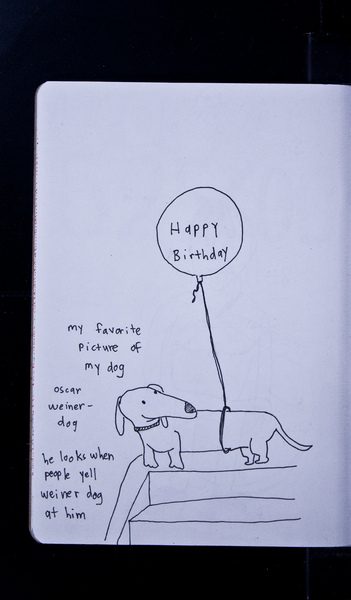 Happy
Birthday
my favorite
picture of
my dog
oscar
weiner-
dog
he looks when
people yell
weiner dog
at him